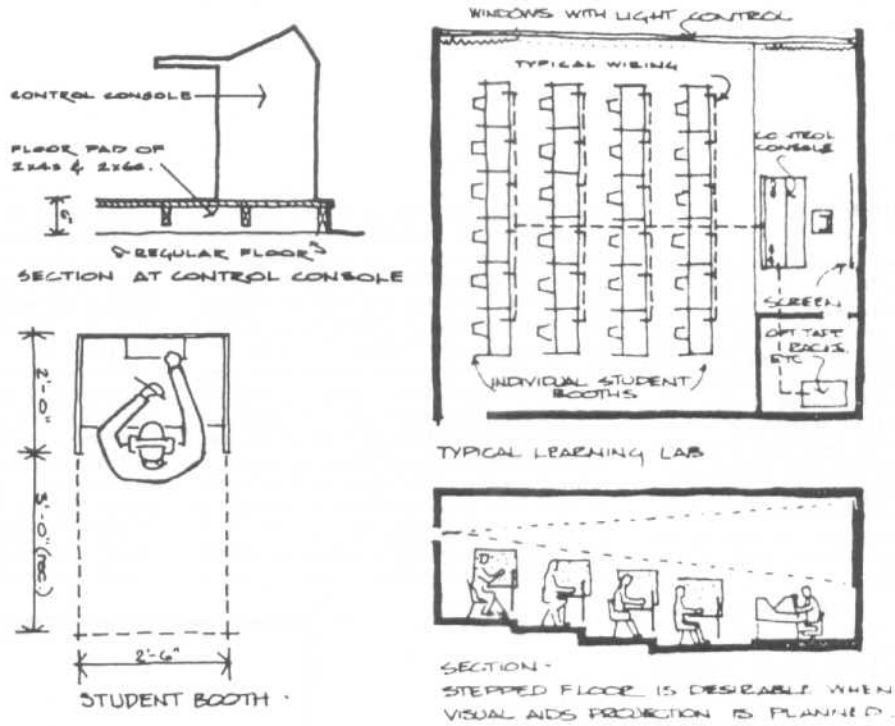 CONTROL CONSOLE
FLOOR PAD OF
2x4s & 2x6s.
6"
REGULAR FLOOR
SECTION AT CONTROL CONSOLE
2'-0"
3'-0" (rec)
2'-6"
STUDENT BOOTH.
WINDOWS WITH LIGHT CONTROL
TYPICAL WIRING
CONTROL
CONSOLE
SCREEN
RACKS
ETC
INDIVIDUAL STUDENT
BOOTHS
TYPICAL LEARNING LAB
SECTION-
STEPPED FLOOR IS DESIRABLE WHEN
VISUAL AIDS PROJECTION IS PLANNED.